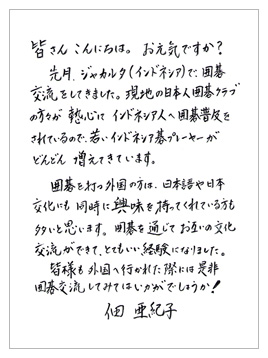 皆さんこんにちは。お元気ですか?
先月、ジャカルタ(インドネシア)で、囲碁
交流をしてきました。現地の日本人囲碁クラブ
の方々が熱心にインドネシア人へ囲碁普及を
されているので、若いインドネシア碁プレーヤーが
どんどん増えてきています。
囲碁を打つ外国の方は、日本語や日本
文化にも同時に興味を持ってくれている方も
多いと思います。囲碁を通じてお互いの文化
交流ができて、とてもいい経験になりました。
皆様も外国へ行かれた際には是非
囲碁交流してみてはいかがでしょうか!
佃 亜紀子